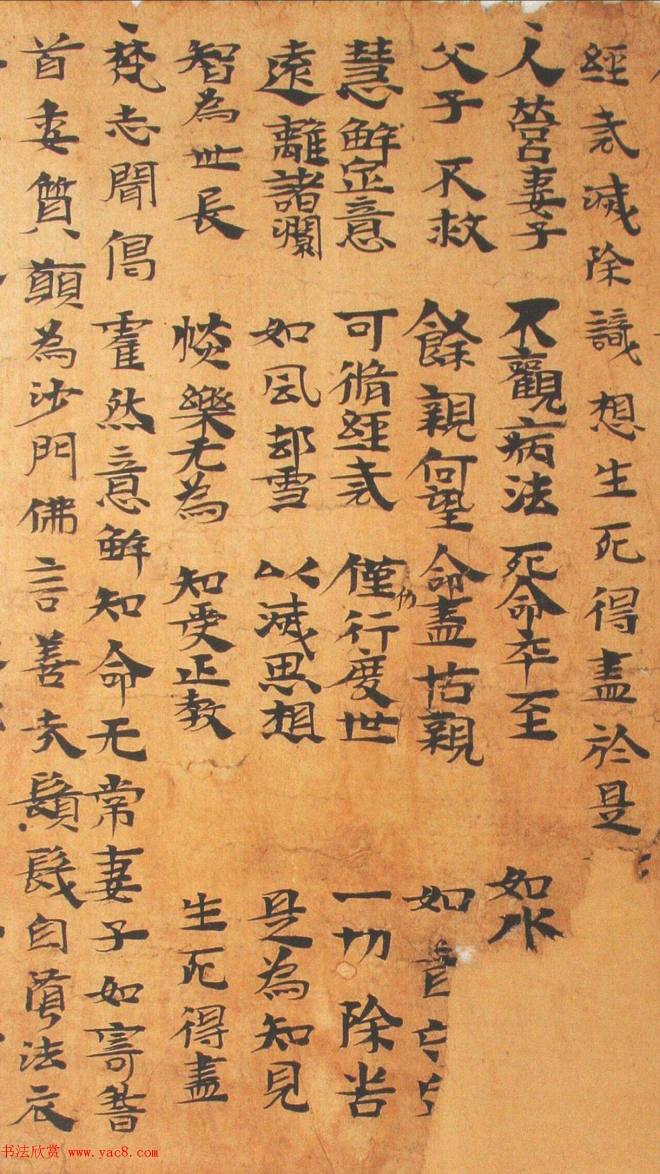 經戒滅除識想生死得盡於是
人營妻子 不觀病法 死命卒至 如水
父子不救 餘親何望 命盡怙親 如盲
慧解定意 可脩經戒 僅行度世 一切除苦
遠離諸瀾 如風却雪 以滅思想 是為知見
智為世長 惔樂无為 知受正教 生死得盡
梵志聞偈霍然意解知命无常妻子如寄
首委質願為沙門佛言善哉鬚髮自墮法衣
书法欣赏 www.yac8.com